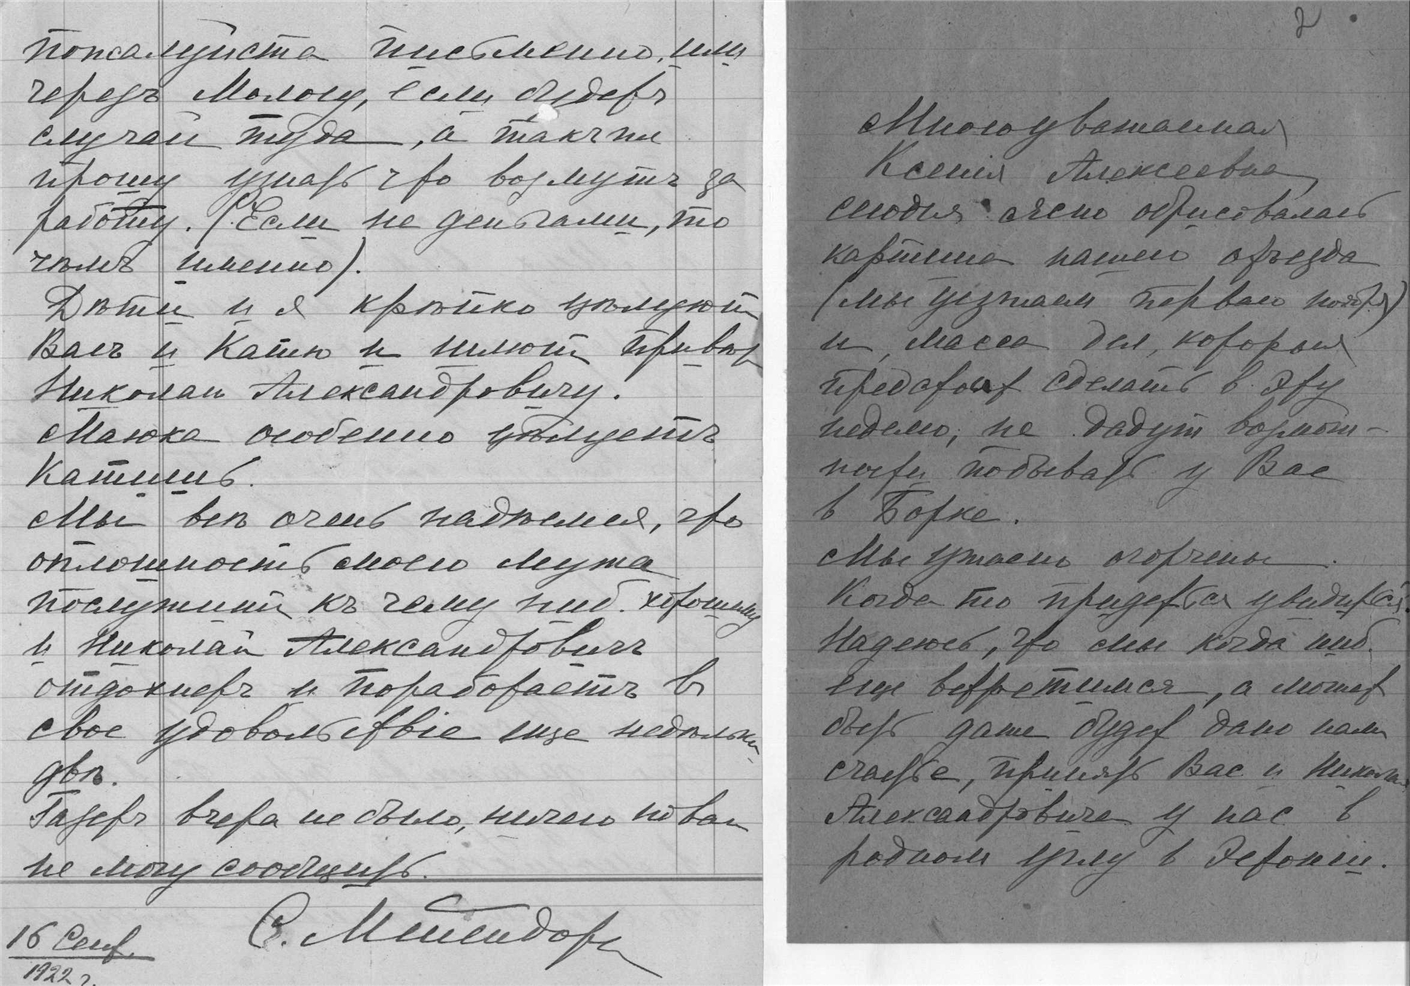 пожалуйста письменно, или
черезъ Мологу, если будетъ
случай туда, а такъ же
прошу узнать что возмутъ за
работу. (Если не деньгами, то
чѣмъ именно).
Дѣти и я крѣпко цѣлуют
Васъ и Катю и шлют привет
Николаю Александровичу.
Маюка особенно цѣлуетъ
Катишь.
Мы всѣ очень надѣемся, что
оплошность моего мужа
послужит къ чему ниб. хорошему
и Николай Александровичъ
отдохнетъ и поработаетъ в
свое удовольствіе еще недѣльки
двѣ.
Газетъ вчера не было, ничего новаго
не могу сообщить.
С. Мейендорф
16 Сент.
1922 г.
2
Многоуважаемая
Ксения Алексеевна,
сегодня ясно обрисовалась
картина нашего отъезда
(мы уезжаем первого ноября)
и масса дел, которыя
предстоит сделать в эту
неделю, не дадут возмож-
ности побывать у Вас
в Борке.
Мы ужасно огорчены.
Когда то придется увидеться.
Надеюсь, что мы когда ниб.
еще встретимся, а может
быть даже будет дано нам
счастье, принять Вас и Николая
Александровича у нас в
родном углу в Эстонии.